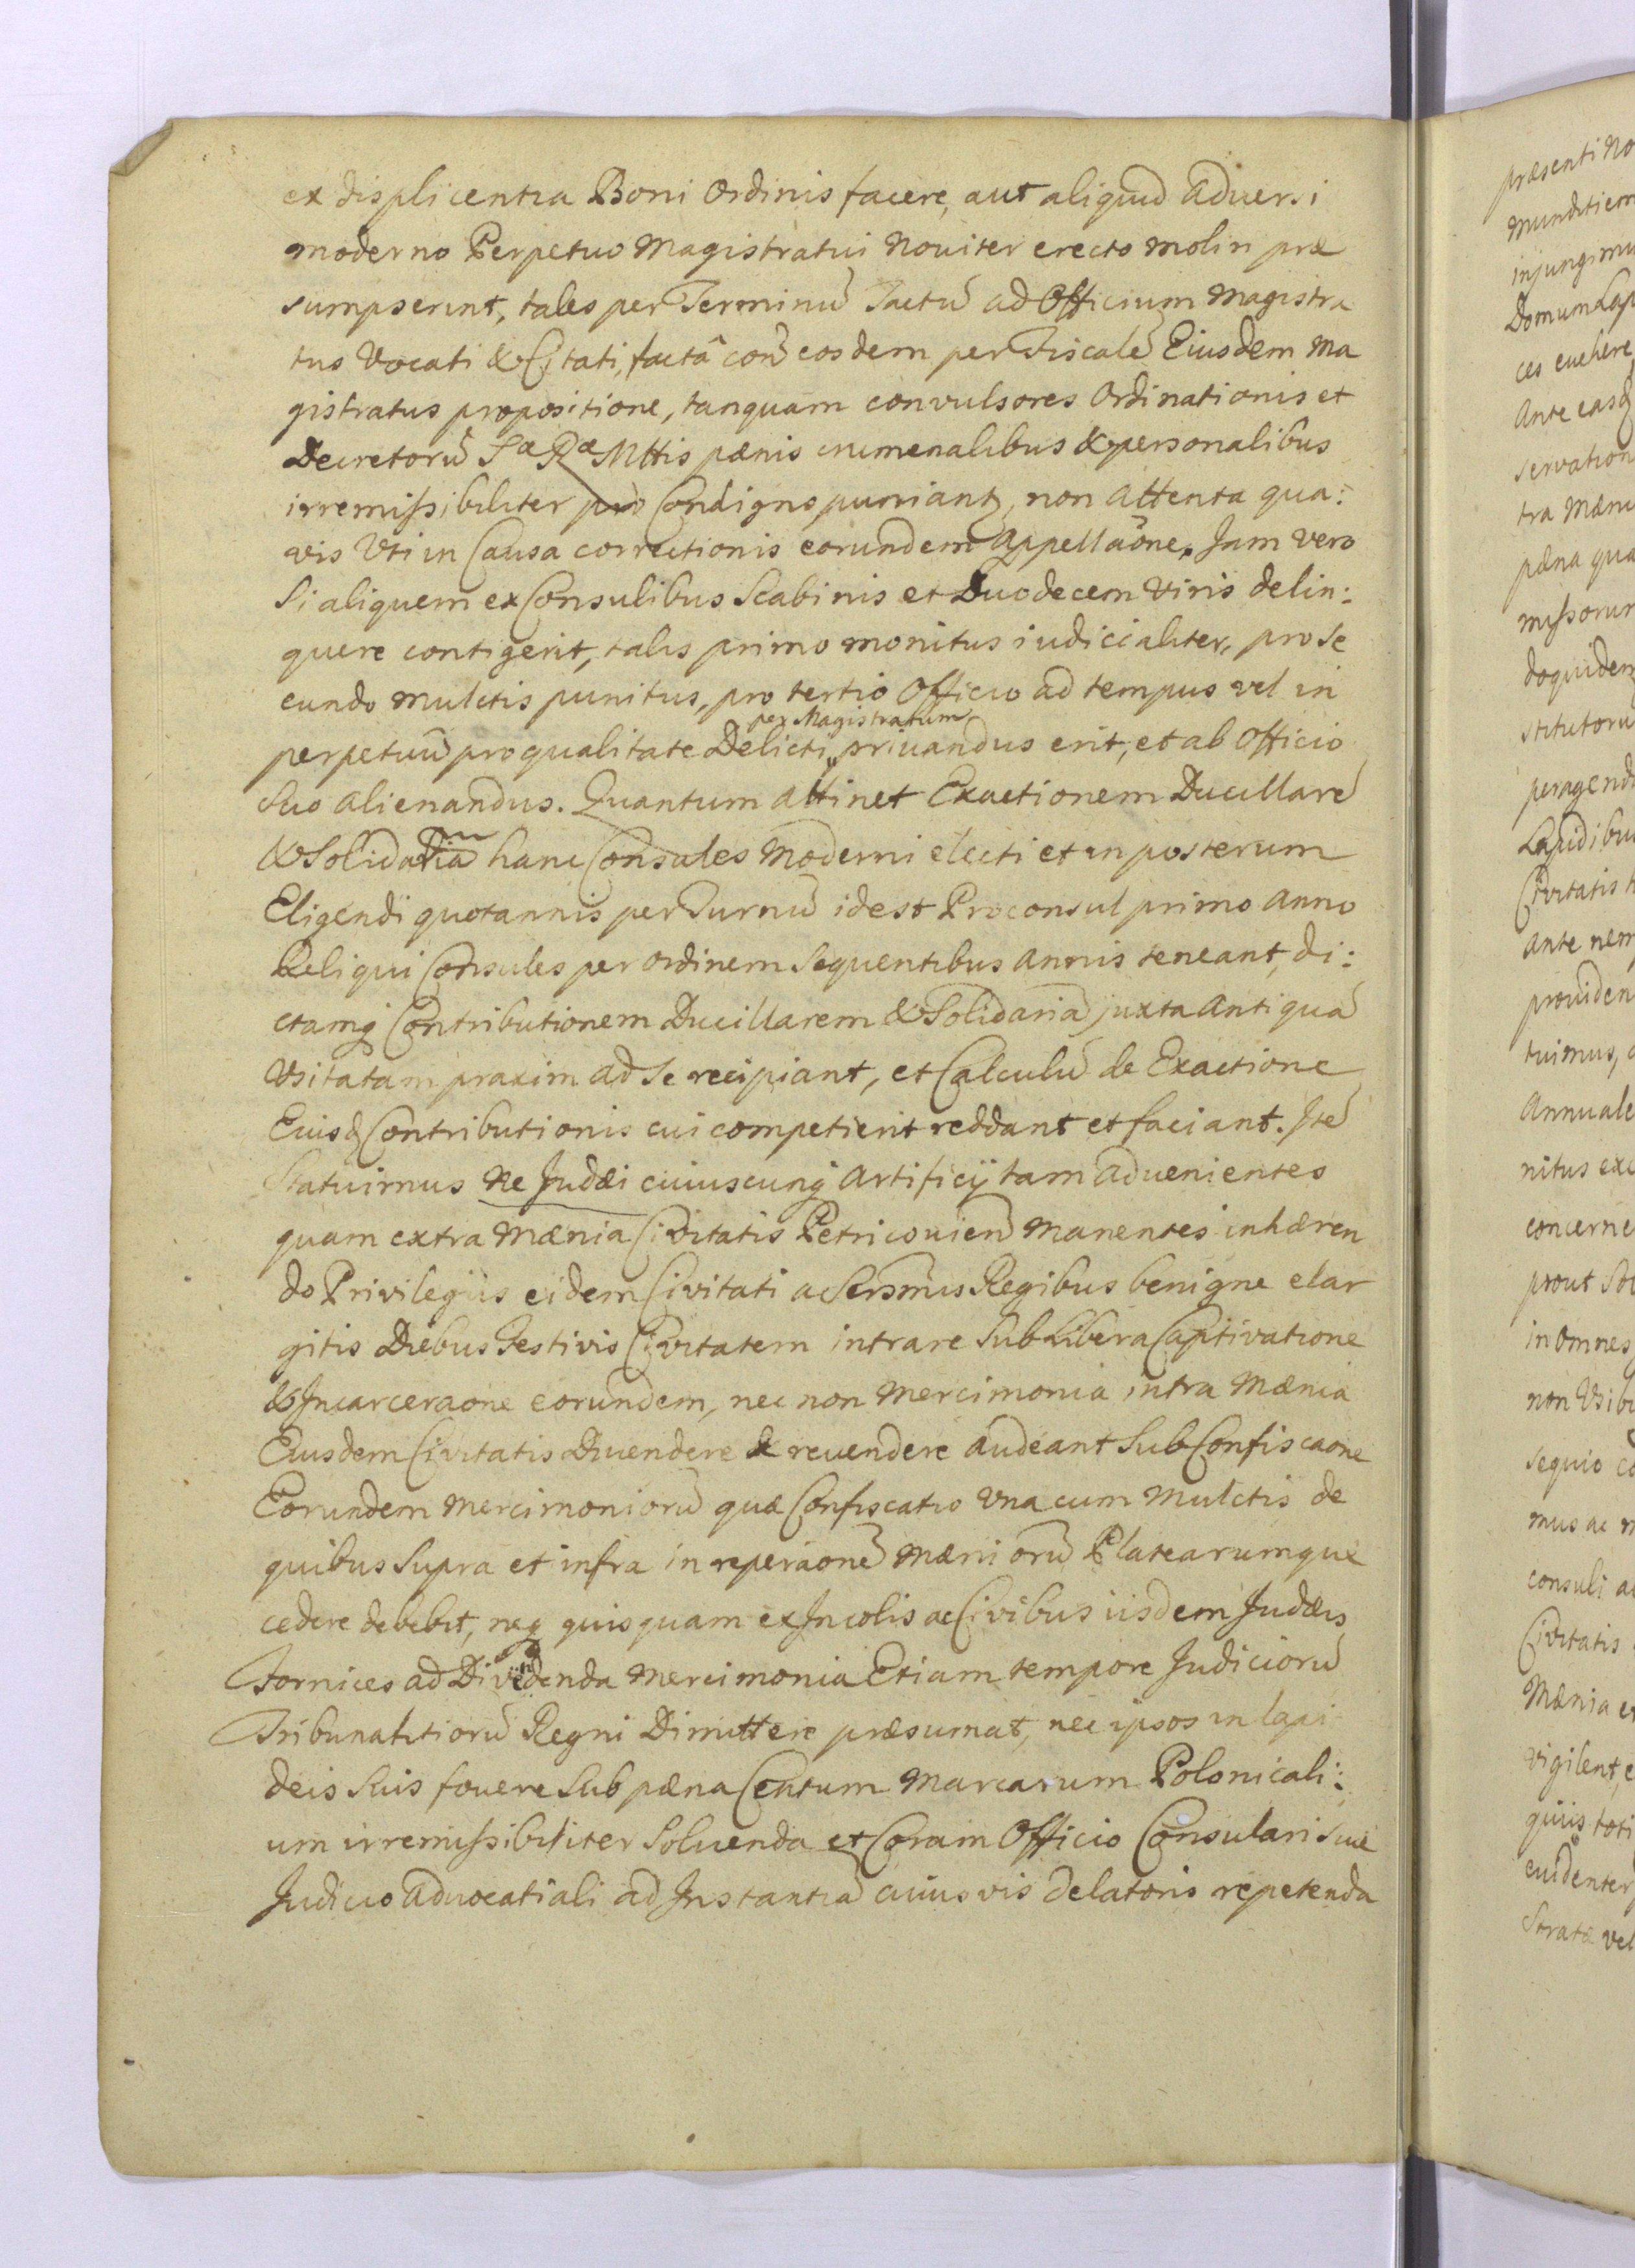 ex displicentia Boni Ordinis facere, aut aliquid adversi
moderno Perpetuo Magistratui Noviter erecto moliri præ
sumpserint, tales per Terminū Tactū ad Officium Magistra
tus Vocati & Citati, factâ con̄ eosdem per Fiscalē Eiusdem Ma
gistratus propositione, tanquam convulsores Ordinationis et
Decretorū Sæ Ræ Mttis pænis crumenalibus & personalibus
irremissibiliter pro Condigno puniantʒ, non attenta qua:
vis Uti in Causa correctionis eorundem Appellāone. Jam vero
Si aliquem ex Consulibus Scabinis et Duodecem Viris delin:
quere contigerit, talis primo monitus iudicialiter, pro Se
cundo mulctis punitus, pro tertio Officio ad tempus vel in
per Magistratum
perpetuū pro qualitate Delicti privandus erit, et ab Officio
Suo alienandus. Quantum attinet Exactionem Ducillarē
& Solidariā hanc Consules Moderni electi et in posterum
Eligendi quotannis per Turnū idest Proconsul primo Anno
Reliqui Consules per Ordinem Sequentibus Annis teneant, di:
ctamq Contributionem Ducillarem & Solidariā juxta Antiquā
Usitatam praxim ad Se recipiant, et Calculū de Exactione
Eiusd Contributionis cui competierit reddant et faciant. Itē
Statuimus Ne Judæi cuiuscunq Artificij tam advenientes
quam extra Mænia Civitatis Petricovien̄ Manentes inhæren
do Privilegiis eidem Civitati a Sers̄mis Regibus benigne elar
gitis Diebus Festivis Civitatem intrare Sub Libera Captivatione
& Incarceraone eorundem, nec non Mercimonia intra Mænia
Eiusdem Civitatis Divendere & revendere audeant Sub Confiscaone
Eorundem Mercimoniorū quæ Confiscatio Una cum Mulctis de
quibus Supra et infra in reperaonē Mæniorū Platearumque
cedere debebit, neq quisquam ex Incolis ac Civibus iisdem Judæis
Fornices ad Divendenda Mercimonia Etiam tempore Judiciorū
Tribunalitiorū Regni Dimittere præsumat, nec ipsos in lapi
deis Suis fovere Sub pæna Centum Marcarum Polonicali:
um irremissibiliter Solvenda et Coram Officio Consulari Sive
Judicio Advocatiali ad Instantiā cuiusvis delatoris repetenda
præsenti
munditiem
injungimu
Domum Lap
ces evehere
Ante easd
servation
tra Mæni
pæna qua
missorum
doquidem
stitutoru
peragend
Lapidibus
Civitatis
ante nem
providen
tuimus,
Annuale
nitus exc
concerne
prout
in omnes
non Usib
sequio
mus ac
consuli
Civitatis
Mænia
vigilent,
evidenter
Strata vel